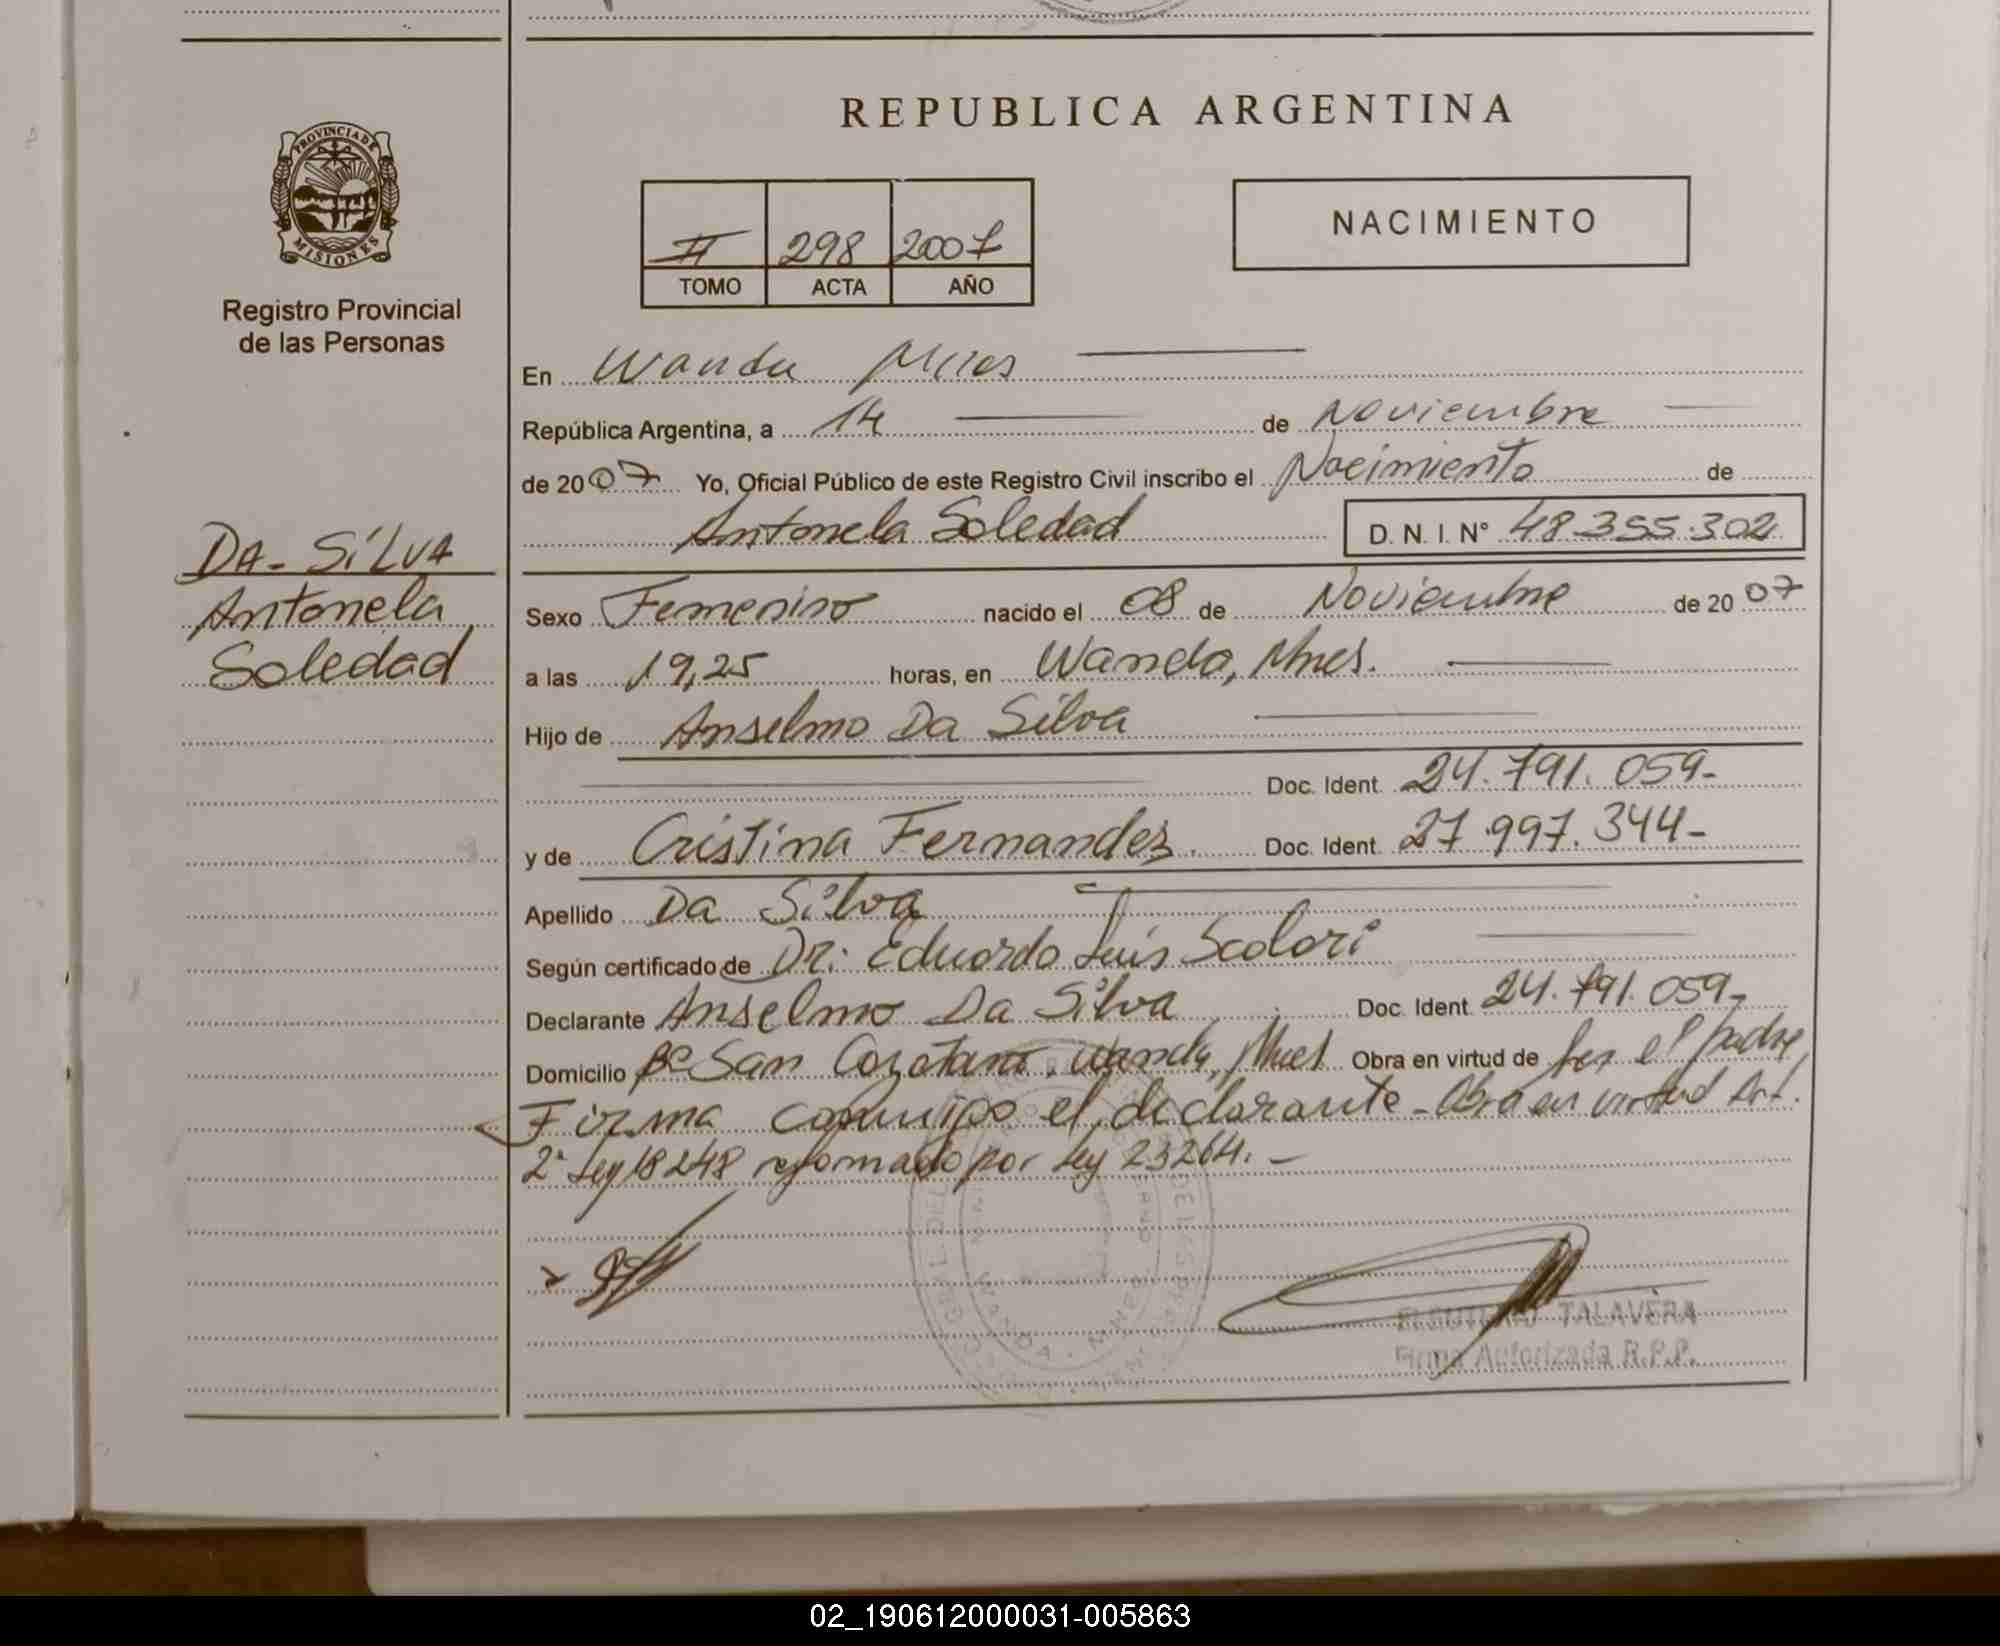 REPUBLICA ARGENTINA
PROVINCIA DE MISIONES
Registro Provincial
de las Personas
II 298 2007
TOMO ACTA AÑO
NACIMIENTO
En Wanda Mnes
República Argentina, a 14 de Noviembre
de 2007 Yo, Oficial Público de este Registro Civil inscribo el Nacimiento de
Antonela Soledad D. N. I. N° 48.355.302
DA-SILVA
Antonela
Soledad
Sexo Femenino nacido el 08 de Noviembre de 2007
a las 19,25 horas, en Wanda, Mnes.
Hijo de Anselmo Da Silva
Doc. Ident. 24.791.059-
y de Cristina Fernandez. Doc. Ident. 27.997.344-
Apellido Da Silva
Según certificado de Dr: Eduardo Luis Scolari
Declarante Anselmo Da Silva Doc. Ident. 24.791.059-
Domicilio Bº San Cayetano, Wanda, Mnes Obra en virtud de ser el padre,
Firma conmigo el declarante - Obra en virtud Art.
2º Ley 18248 reformado por Ley 23264. -
WANDA - MNES
ELEUTERIO TALAVERA
Firma Autorizada R.P.P.
02_190612000031-005863